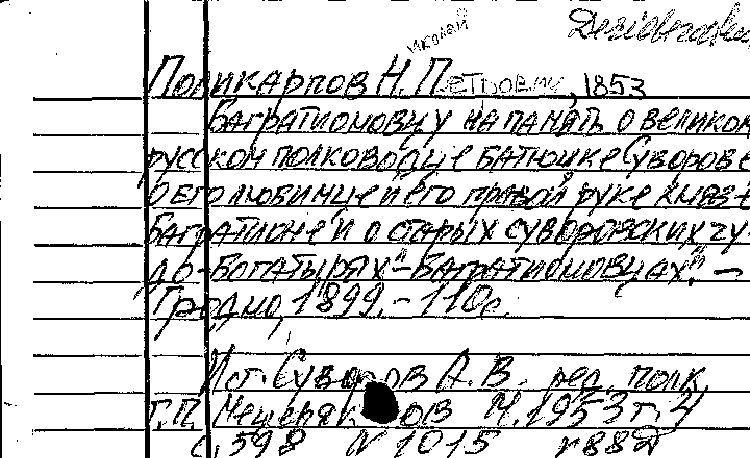 николай
Поликарпов Н. Петрович, 1853
Багратионовцу на память о великом
русском полководце батюшке Суворове
о его любимце и его правой руке князе
Багратионе и о старых суворовских чу-
до-богатырях "Багратионовцах". –
Гродно, 1899. – 110с.
Ист. Суворов А. В. ред. полк.
Г.П. Мещеряков М. 1953 г. 4
с. 598 N 1015